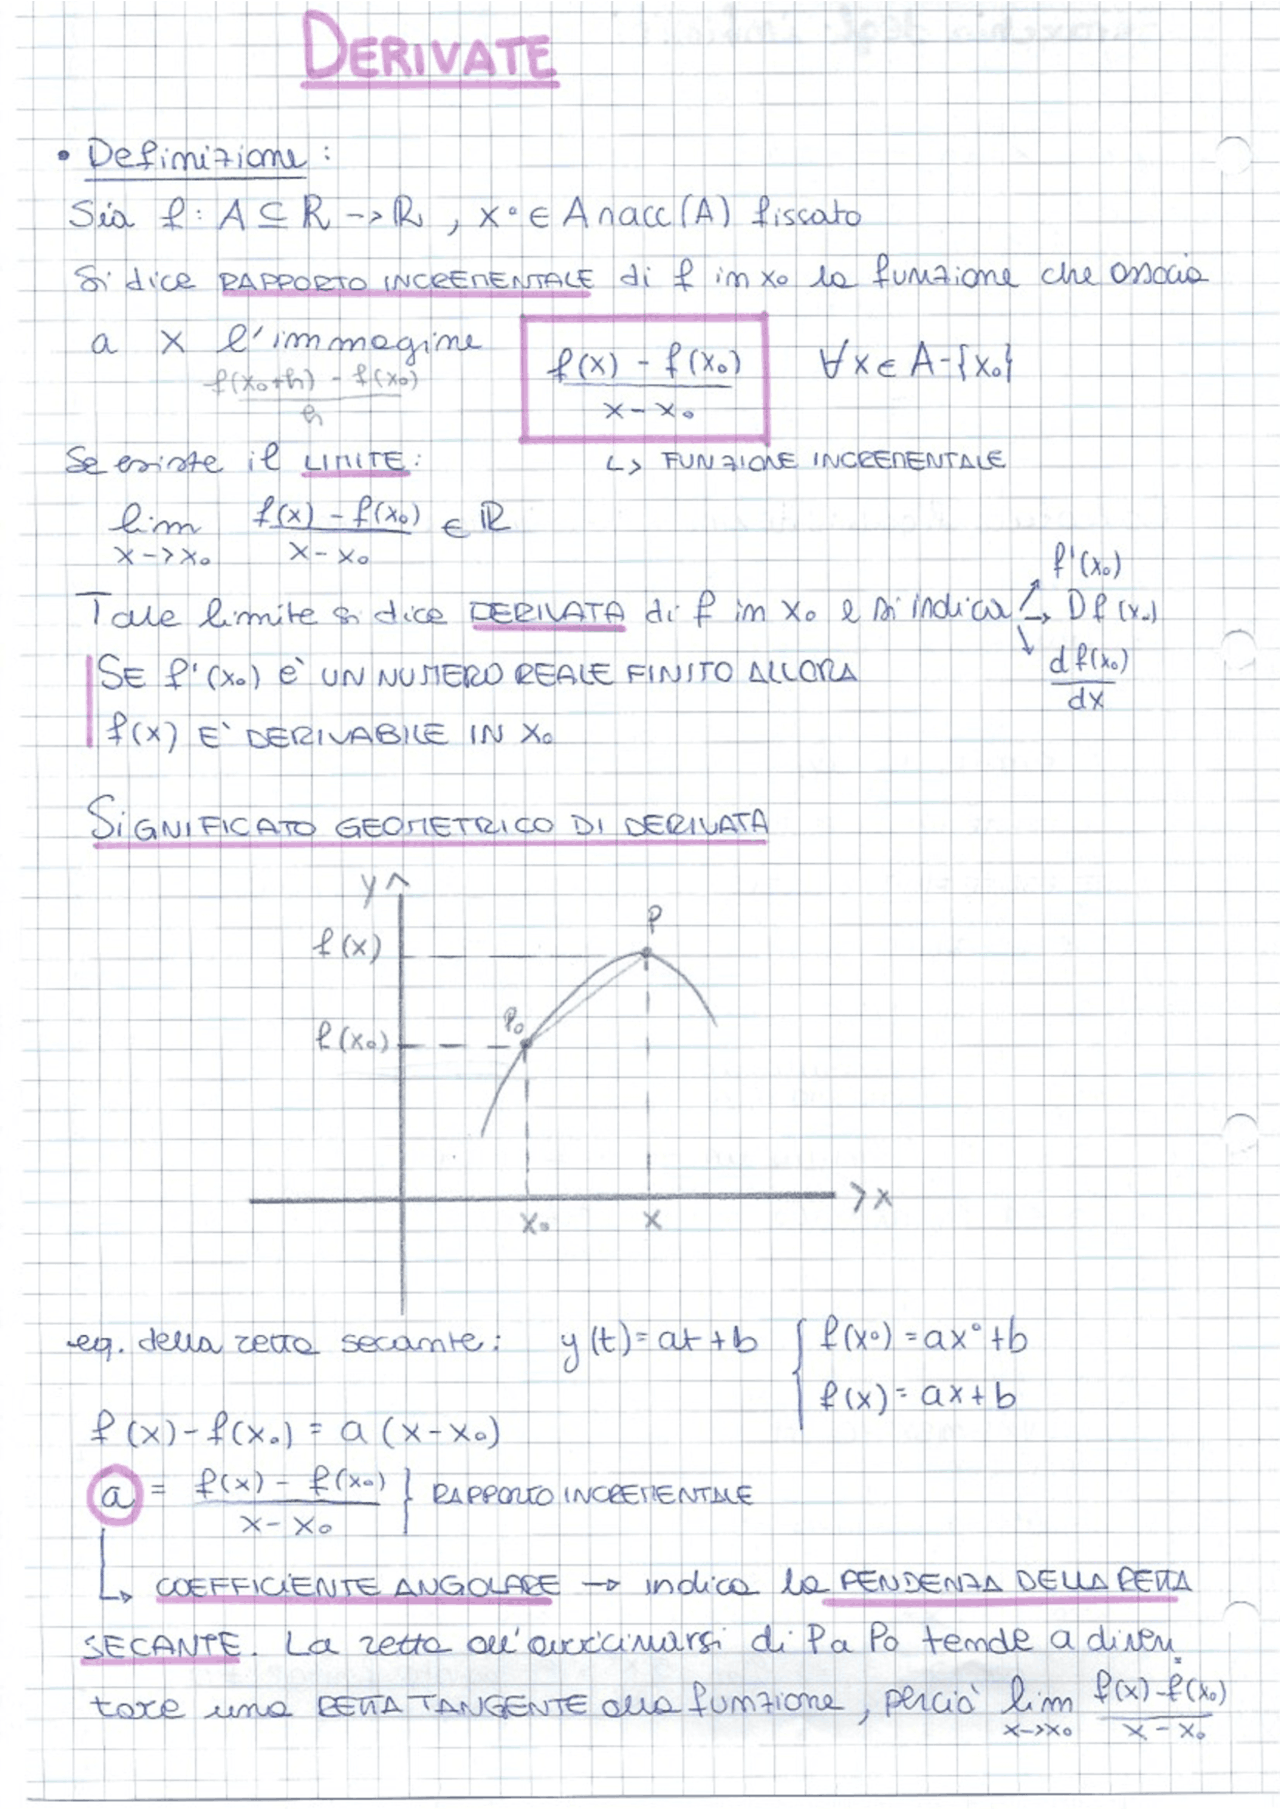 DERIVATE
• Definizione:
Sia f: A ⊆ R -> R, x° ∈ A ∩ acc(A) fissato
Si dice RAPPORTO INCREMENTALE di f in x₀ la funzione che associa
a x l'immagine (f(x) - f(x₀))/(x - x₀) ∀x ∈ A-{x₀}
(f(x₀+h) - f(x₀))/h
Se esiste il LIMITE: ↳ FUNZIONE INCREMENTALE
lim x->x₀ (f(x) - f(x₀))/(x - x₀) ∈ R
f'(x₀)
Tale limite si dice DERIVATA di f in x₀ e si indica → Df(x₀)
SE f'(x₀) È UN NUMERO REALE FINITO ALLORA df(x₀)/dx
f(x) E' DERIVABILE IN x₀
SIGNIFICATO GEOMETRICO DI DERIVATA
y
P
f(x)
P₀
f(x₀)
x
x₀ x
eq. della retta secante: y(t) = at + b { f(x°) = ax° + b
f(x) = ax + b
f(x) - f(x₀) = a (x - x₀)
a = (f(x) - f(x₀))/(x - x₀) } RAPPORTO INCREMENTALE
↳ COEFFICIENTE ANGOLARE → indica la PENDENZA DELLA RETTA
SECANTE. La retta all'avvicinarsi di P a P₀ tende a diven=
tare una RETTA TANGENTE alla funzione, perciò lim x->x₀ (f(x) - f(x₀))/(x - x₀)